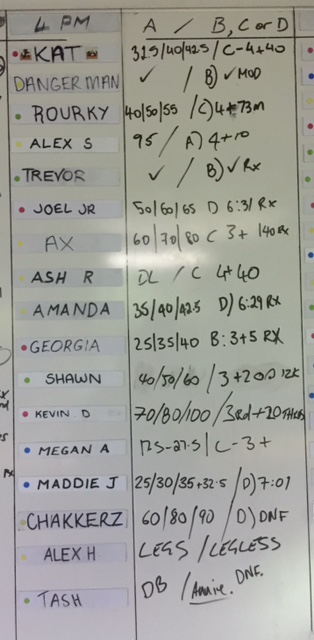 4 PM A / B, C or D
KAT 32.5/40/42.5 / C-4+40
DANGERMAN ✓ / B) ✓ MOD
ROURKY 40/50/55 / C) 4+73m
ALEX S 95 / A) 4+10
TREVOR ✓ / B) ✓ Rx
JOEL JR 50/60/65 D 6:31 Rx
AX 60/70/80 C 3+ 140 Rx
ASH R DL / C 4+40
AMANDA 35/40/42.5 D) 6:29 Rx
GEORGIA 25/35/40 B: 3+5 RX
SHAWN 40/50/60 / 3+20 12K
KEVIN D 70/80/100 / 3Rd+20
MEGAN A 17.5-27.5 / C-3+
MADDIE J 25/30/35+32.5 / D) 7:01
CHAKKERZ 60/80/90 / D) DNF
ALEX H LEGS / LEGLESS
TASH DB / Annie. DNF.